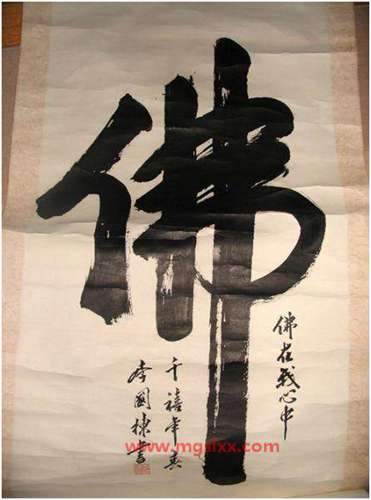 佛
佛在我心中
千禧年春
李國棟書
www.mgslxx.com